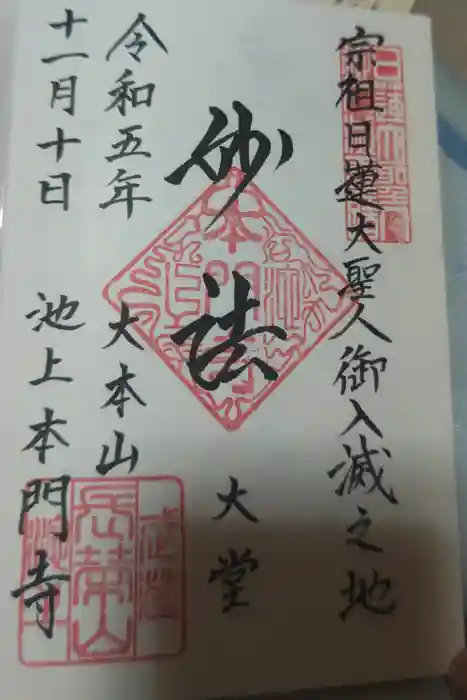 宗祖日蓮大聖人御入滅之地
妙法
大堂
令和五年 大本山
十一月十日 池上本門寺